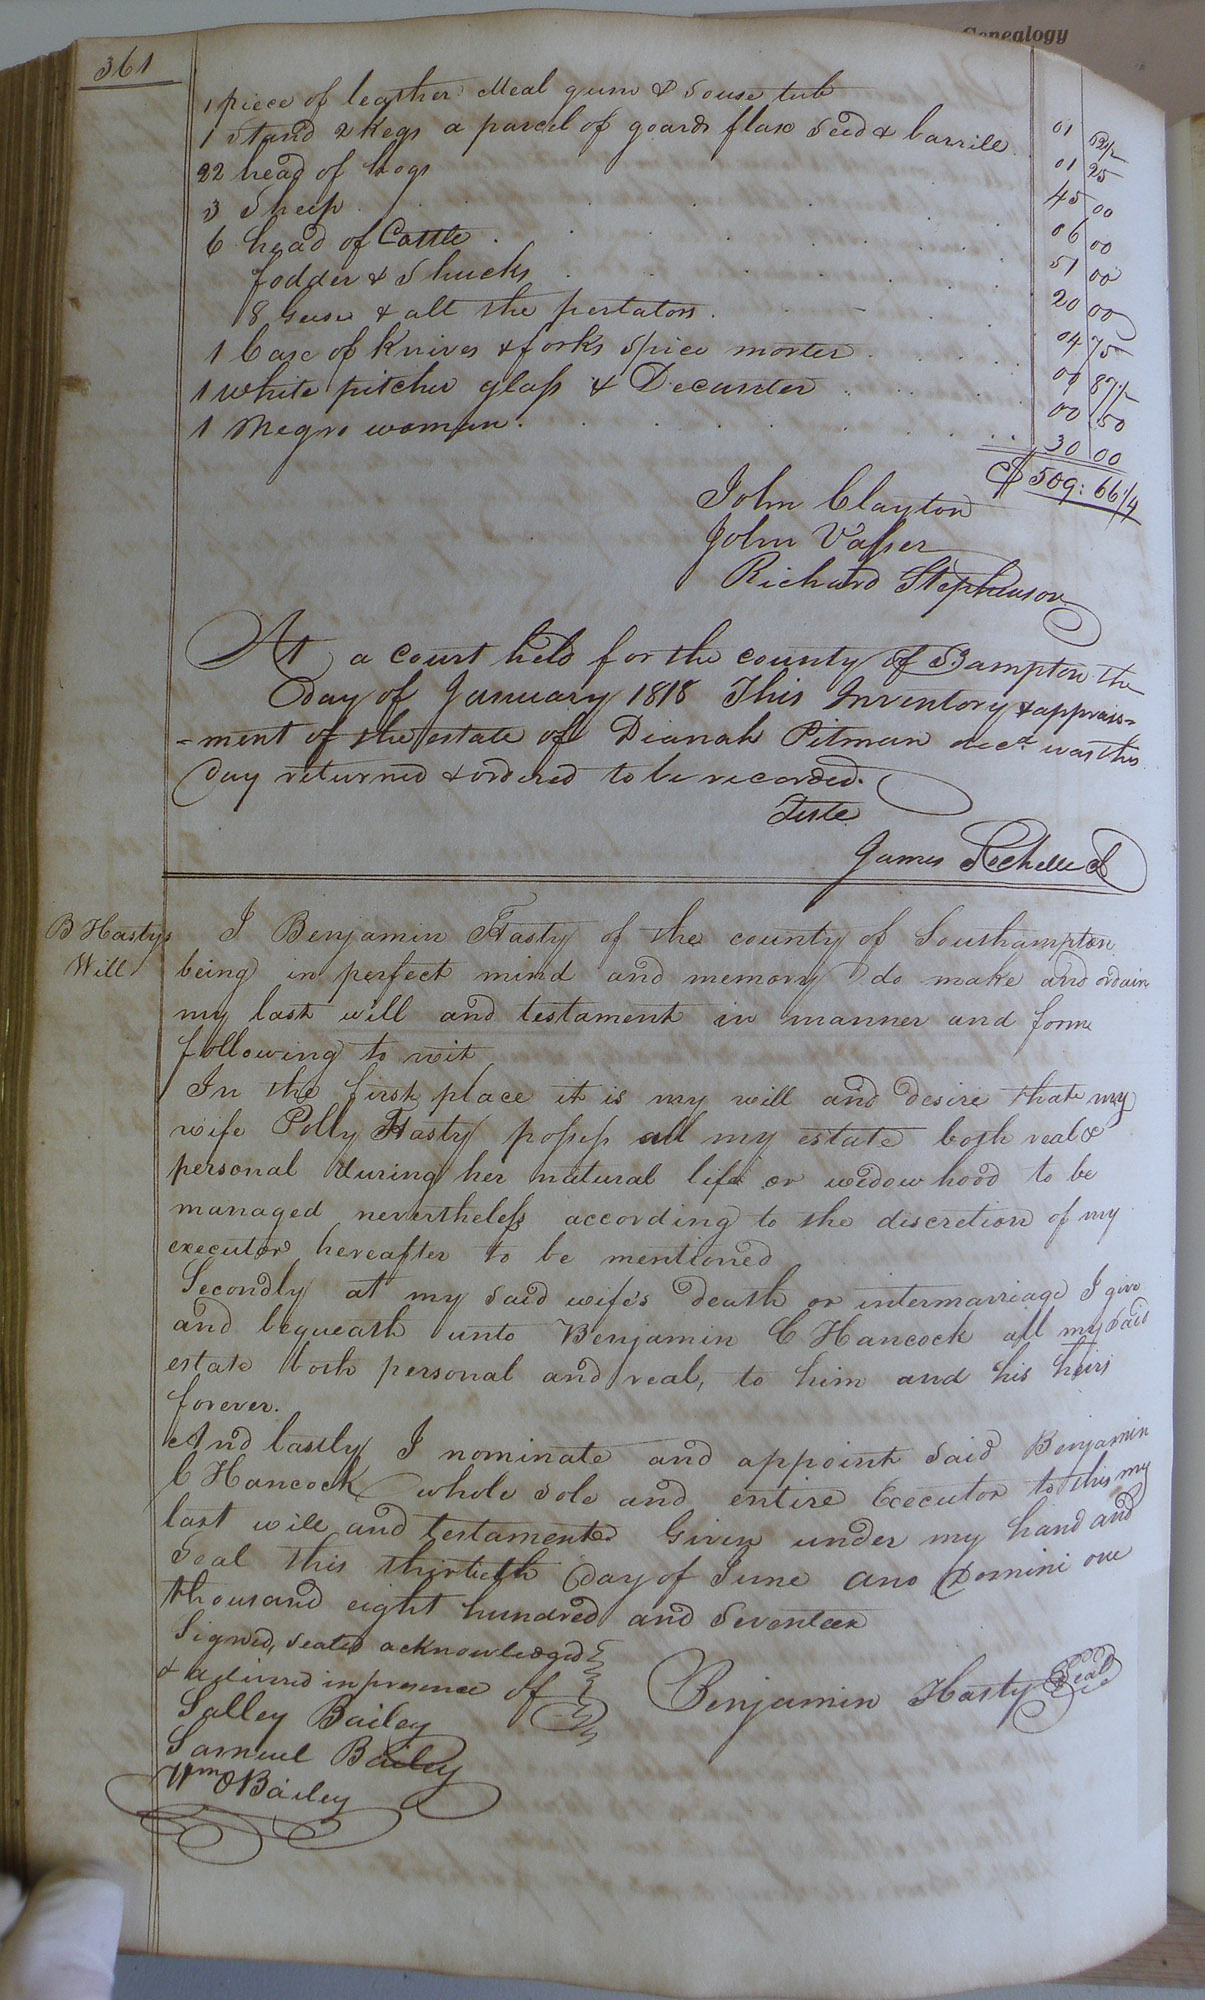 Genealogy
361
1 piece of leather Meal gum & Souse tub 01 62 1/2
1 Stand 2 Kegs a parcel of goards flax Seed & barrill 01 25
22 head of hogs 45 00
3 Sheep 06 00
6 head of Cattle 51 00
fodder & Shucks 20 00
8 Geese & all the pertators 04 75
1 Case of Knives & forks Spice morter 00 87 1/2
1 white pitcher glass & Decanter 00 50
1 Negro woman 30 00
$509:66 1/4
John Clayton
John Vasser
Richard Stephenson
At a court held for the county of S Hampton the
day of January 1818 This Inventory & appraise-
-ment of the estate of Dianah Pitman decd was this
day returned & ordered to be recorded.
Teste
James Rochelle
B Hastys
Will
I Benjamin Hasty of the county of Southampton
being in perfect mind and memory do make and ordain
my last will and testament in manner and form
following to wit
In the first place it is my will and desire that my
wife Polly Hasty possess all my estate both real &
personal during her natural life or widowhood to be
managed nevertheless according to the discretion of my
executor hereafter to be mentioned
Secondly at my said wife's death or intermarriage I give
and bequeath unto Benjamin C Hancock all my said
estate both personal and real, to him and his heirs
forever.
And lastly I nominate and appoint said Benjamin
C Hancock whole sole and entire Executor to this my
last will and testament Given under my hand and
Seal this thirtieth day of June ano Domini one
thousand eight hundred and Seventeen
Signed, sealed acknowledged
& delivered in presence of
Benjamin Hasty Seal
Salley Bailey
Samuel Bailey
Wm O Bailey